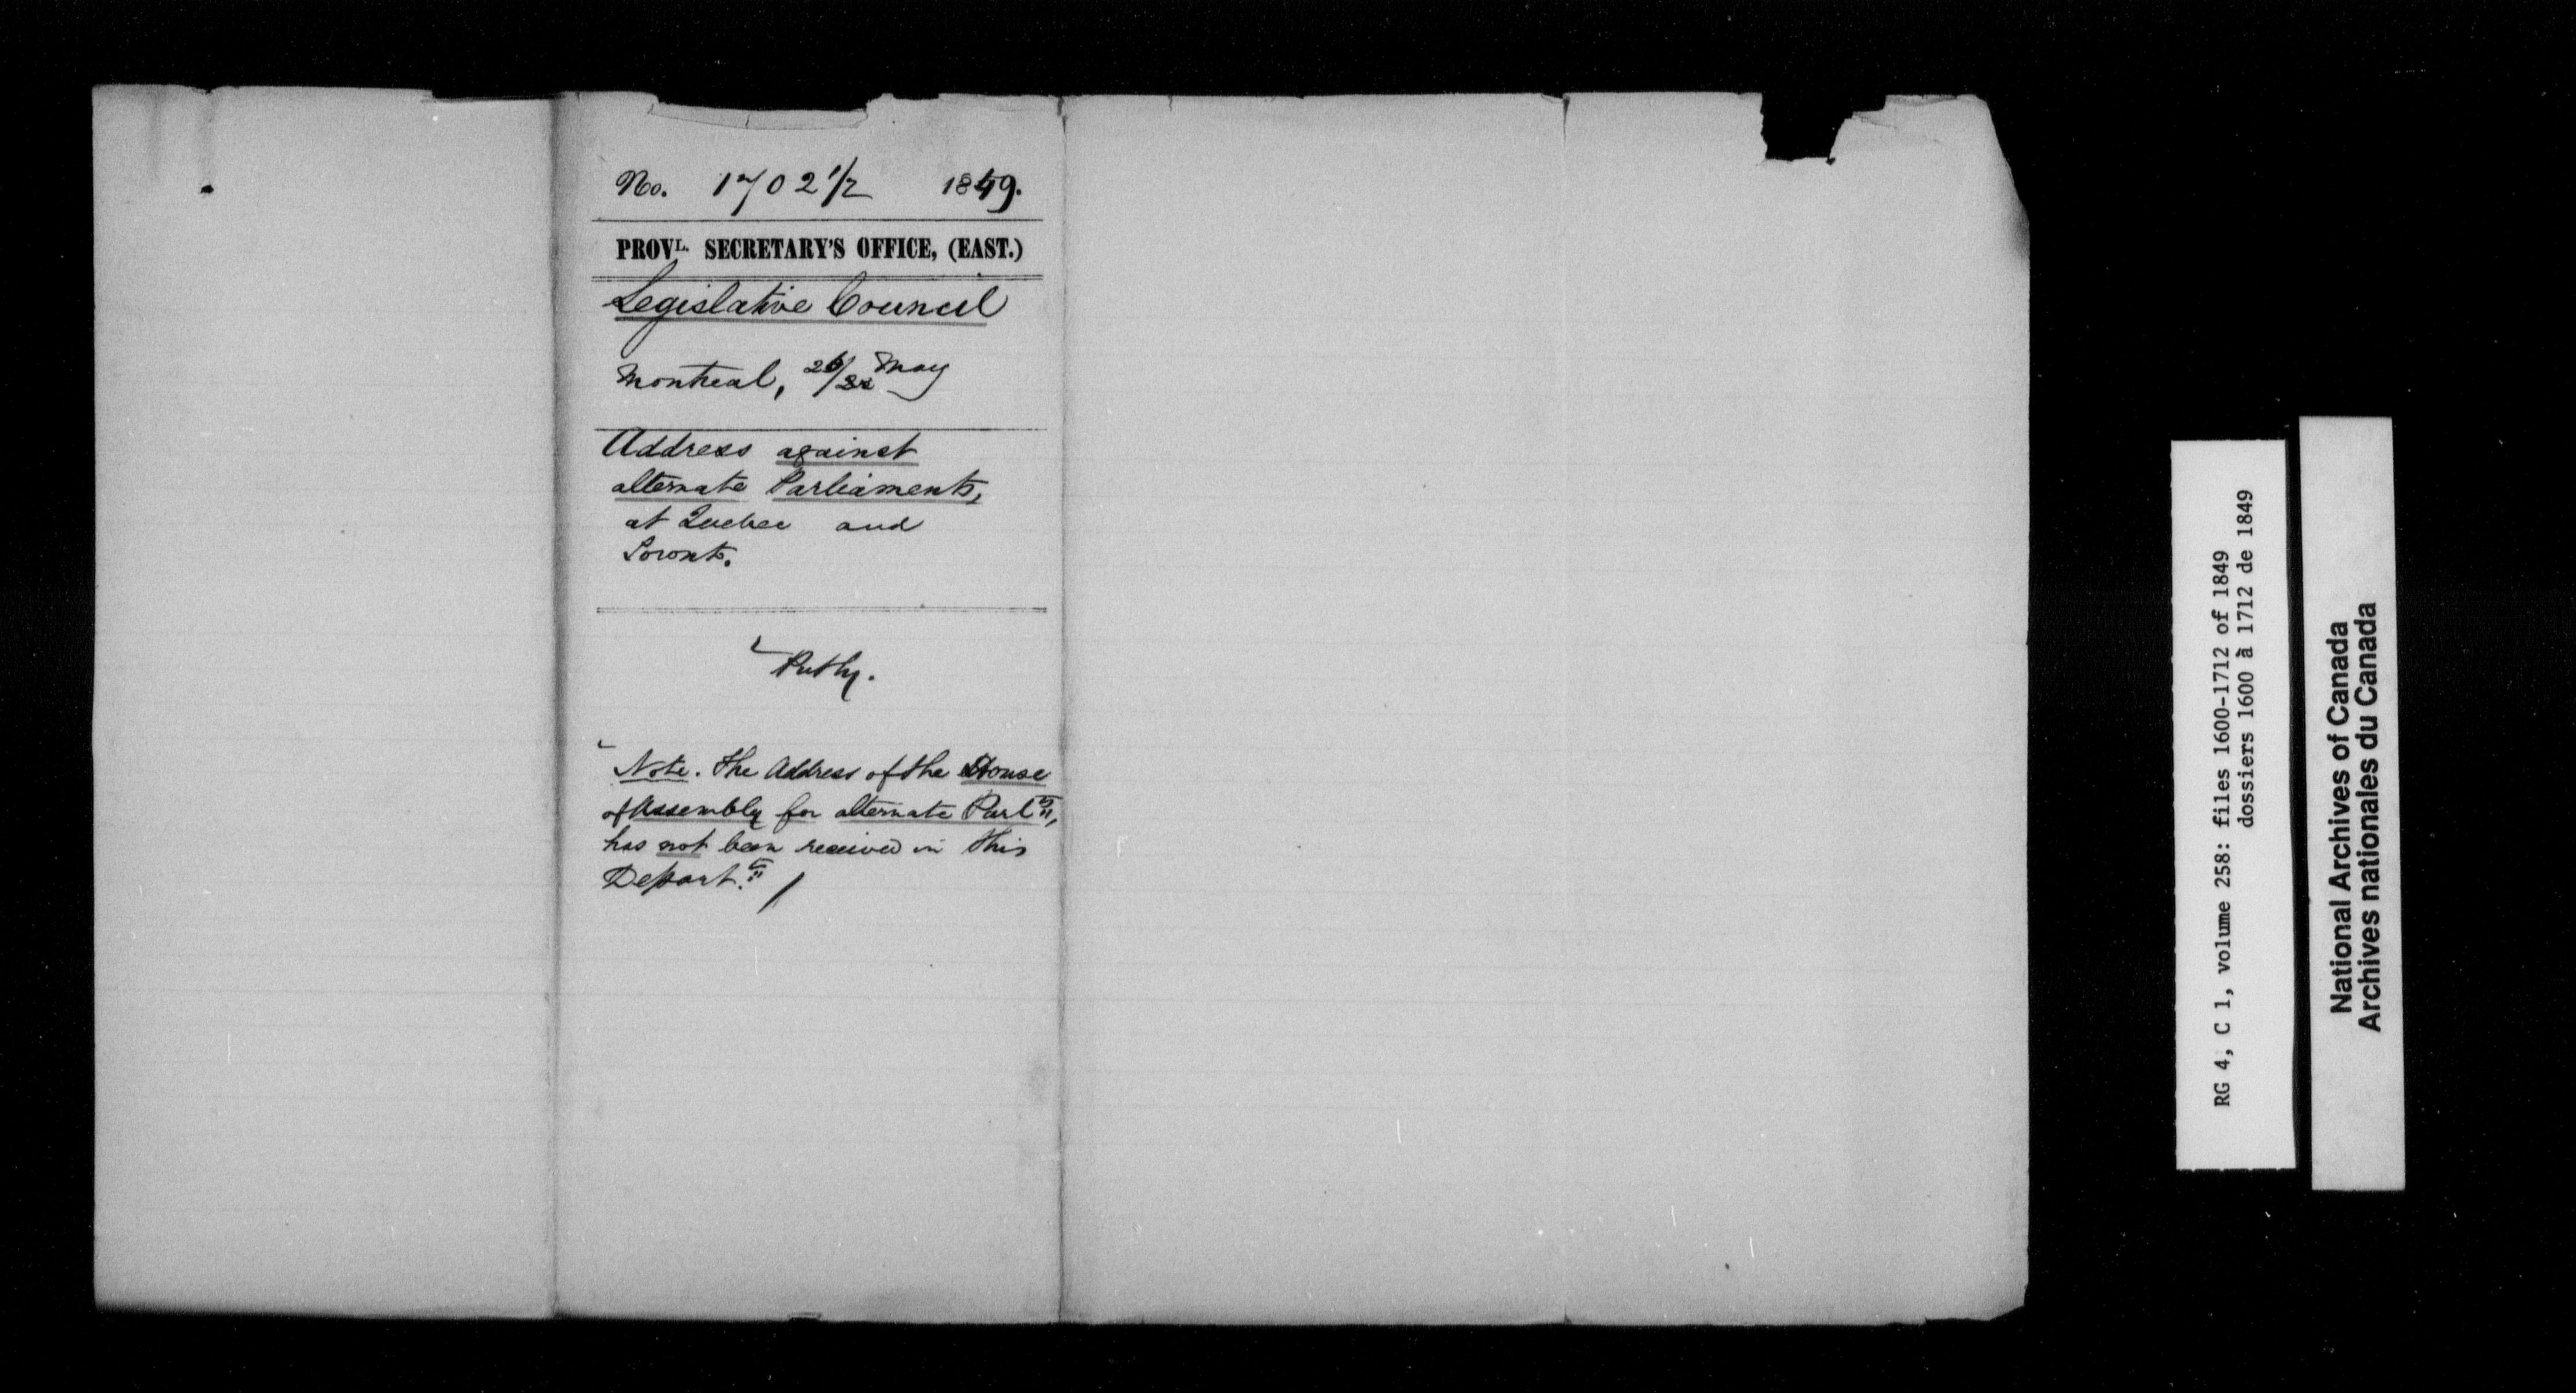 No. 1702 1/2 1849.
PROVL. SECRETARY'S OFFICE, (EAST.)
Legislative Council
Montreal, 26/ May
Address against
alternate Parliaments,
at Quebec and
Toronto.
Note. The Address of the House
of Assembly for alternate Parlts,
has not been received in this
Depart.t /
RG 4, C 1, volume 258: files 1600-1712 of 1849
dossiers 1600 à 1712 de 1849
National Archives of Canada
Archives nationales du Canada